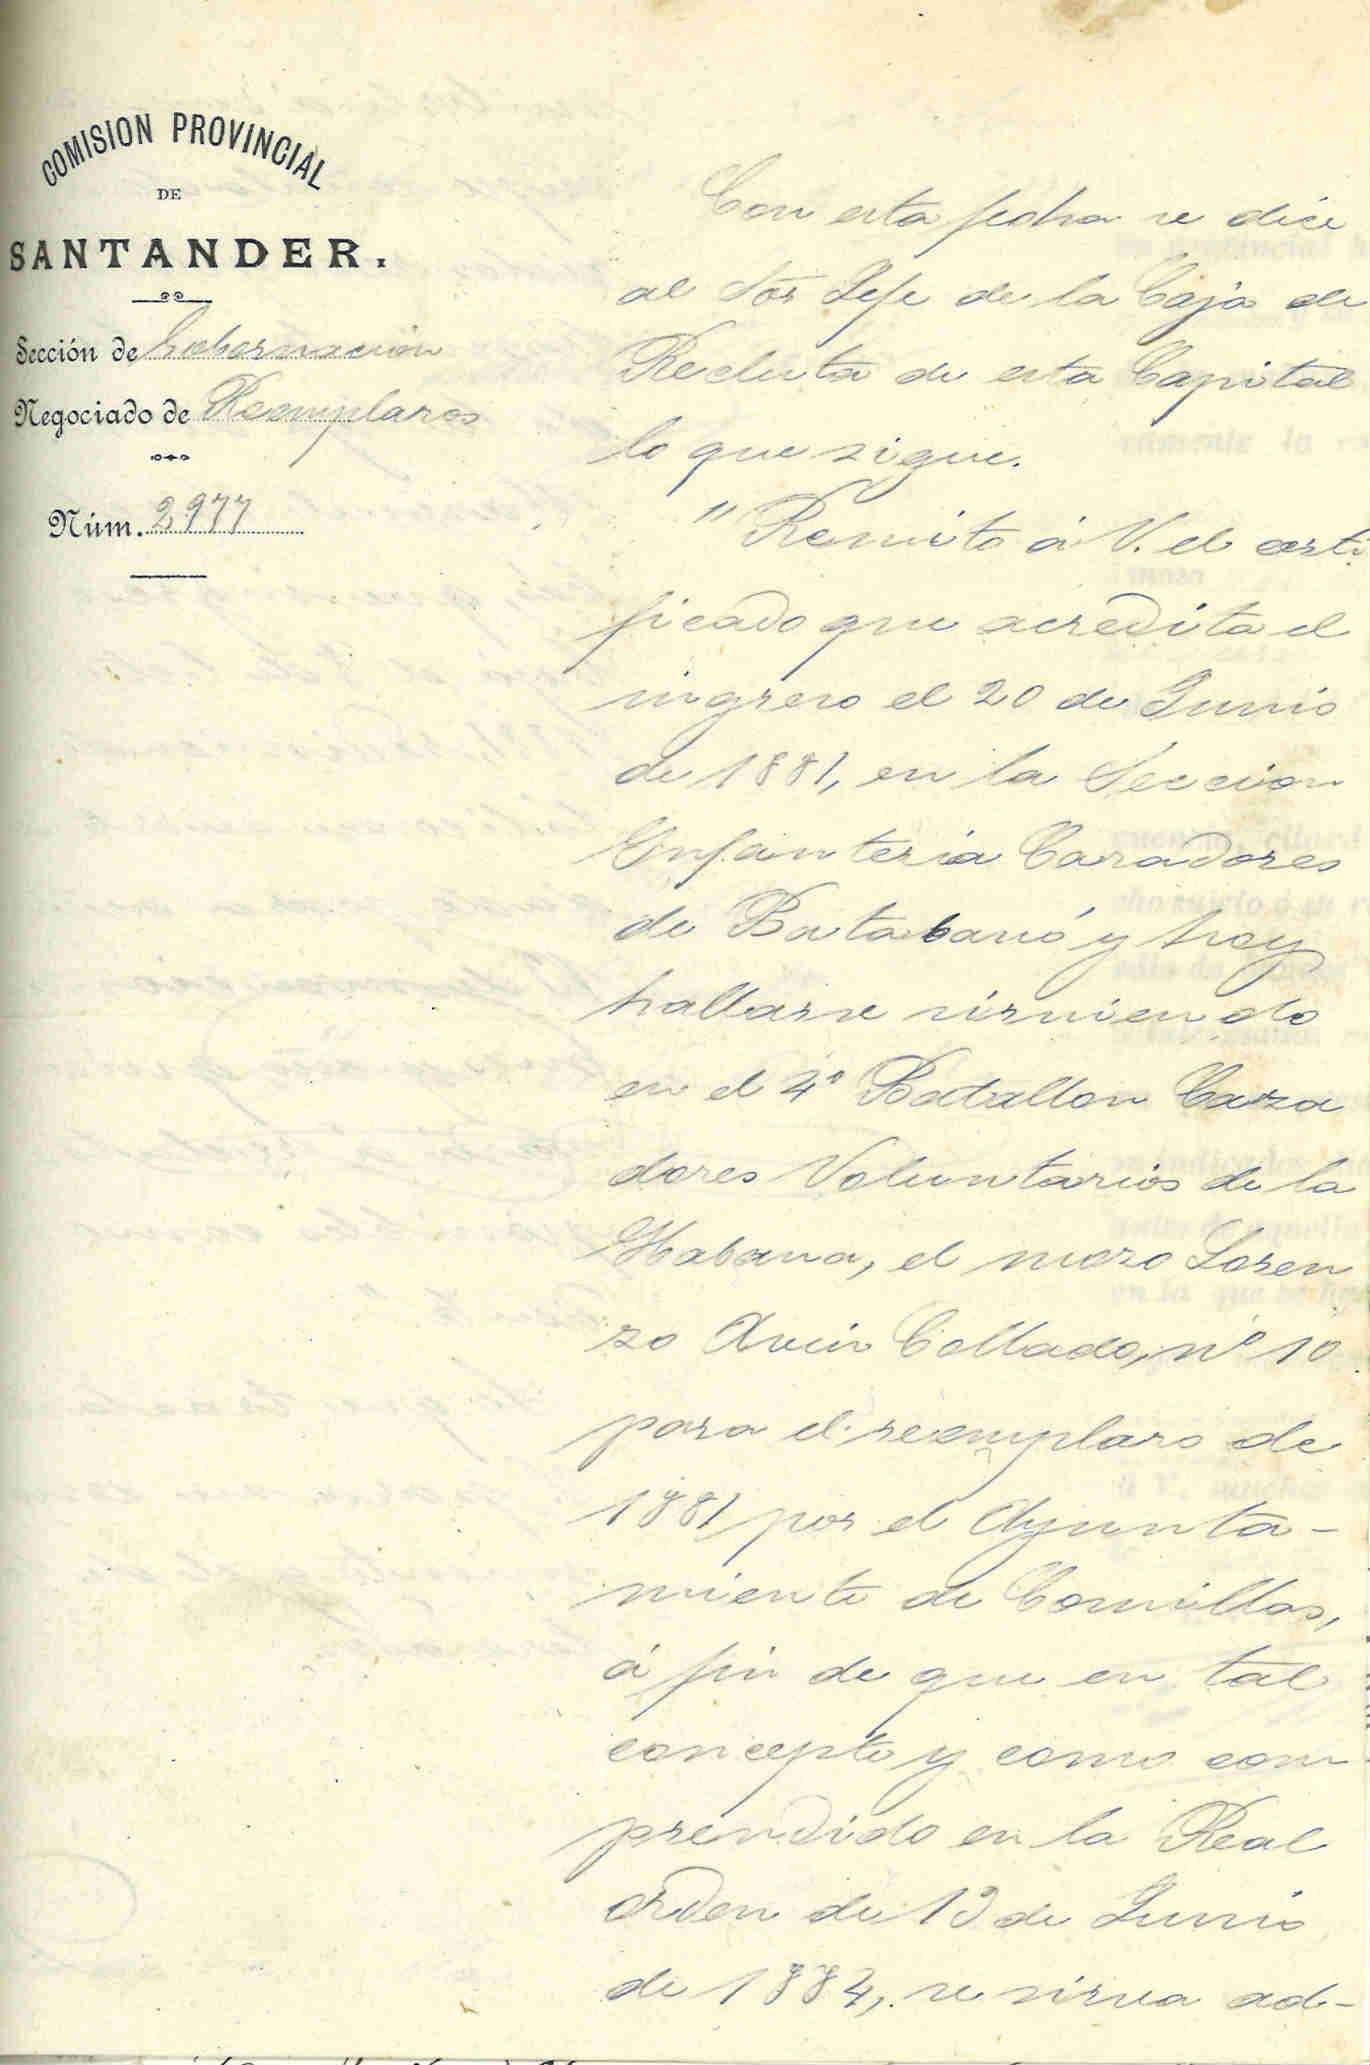 COMISION PROVINCIAL
DE
SANTANDER.
Sección de Gobernación
Negociado de Reemplazos
Núm. 2977
Con esta fecha se dice
al Sor Jefe de la Caja de
Recluta de esta Capital
lo que sigue.
"Remito á V. el certi
ficado que acredita el
ingreso el 20 de Junio
de 1881, en la Seccion
Infanteria Cazadores
de Batabanó y hoy
hallarse sirviendo
en el 4º Batallon Caza
dores Voluntarios de la
Habana, el mozo Loren
zo Avin Collado, nº 10
para el reemplazo de
1881 por el Ayunta-
miento de Comillas,
á fin de que en tal
concepto y como com
prendido en la Real
orden de 13 de Junio
de 1884, se sirva ad-